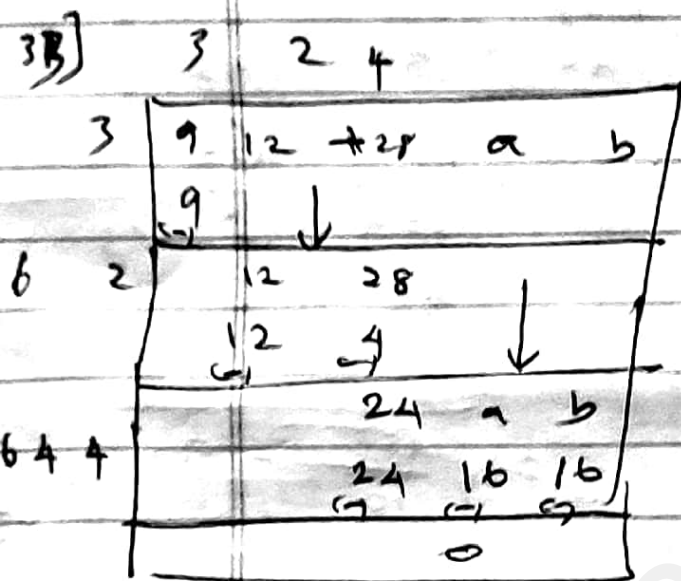 3B] 3 2 4
3 9 12 +28 a b
9
(-) ↓
6 2 12 28
12 4 ↓
(-) (-)
24 a b
6 4 4
24 16 16
(-) (-) (-)
0